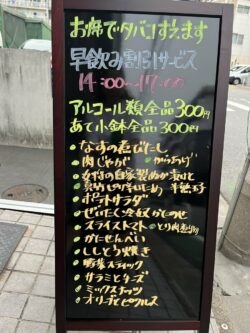 お席でタバコすえます
早飲み割引サービス
14:00~17:00
アルコール類全品300円
あて小鉢全品300円
なすの煮びたし
肉じゃが からあげ
ポテトサラダ
スライストマト とり肉
かたせんべい
ししとう焼き
野菜スティック
サラミとチーズ
ミックスナッツ
オリーブとピクルス